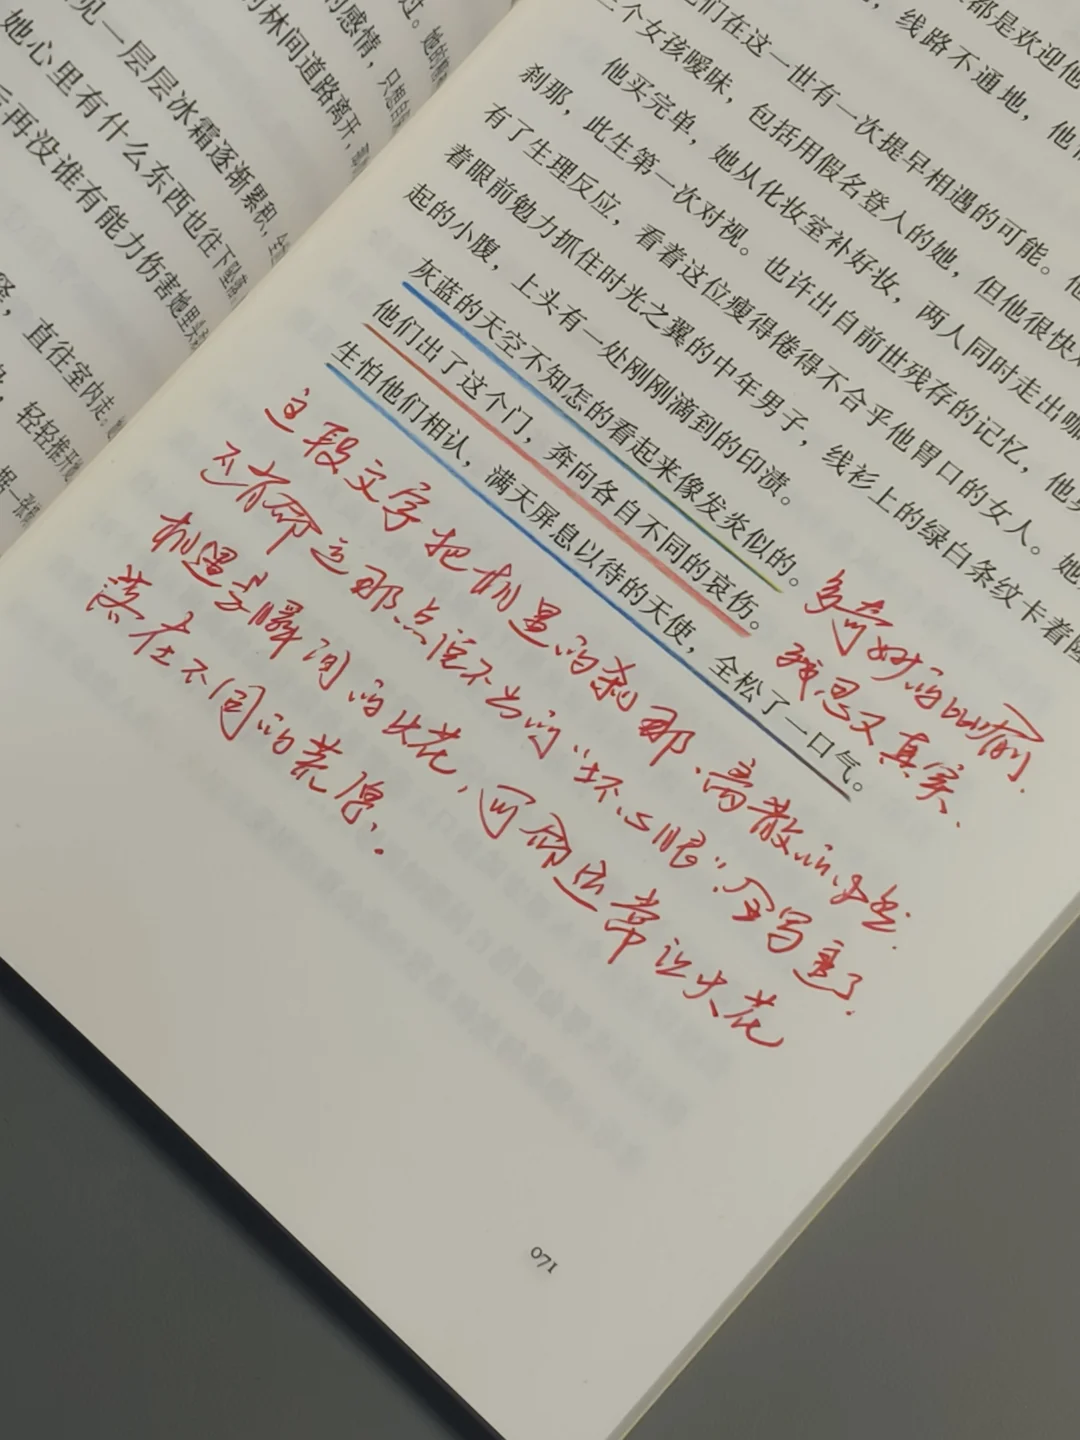 见一层层冰霜逐渐累积，
她心里有什么东西也往下坠
再没谁有能力伤害她
直往室内走
轻轻推开
过。她的
的感情，只
的林间道路离开，
都是欢迎他
线路不通地，他
们在这一世有一次提早相遇的可能。他
三个女孩暧昧，包括用假名登入的她，但他很快
他买完单，她从化妆室补好妆，两人同时走出咖
刹那，此生第一次对视。也许出自前世残存的记忆，他
有了生理反应，看着这位瘦得倦得不合乎他胃口的女人。她
着眼前勉力抓住时光之翼的中年男子，线衫上的绿白条纹卡着隆
起的小腹，上头有一处刚刚滴到的印渍。
灰蓝的天空不知怎的看起来像发炎似的。
他们出了这个门，奔向各自不同的哀伤。
生怕他们相认，满天屏息以待的天使，全松了一口气。
多奇妙的比喻
又真实、
这段文字把相遇的刹那、离散的
还有命运那点说不出的“坏心眼”全写重了.
相遇是瞬间的火花，可命运常让火花
落在不同的荒原.
071